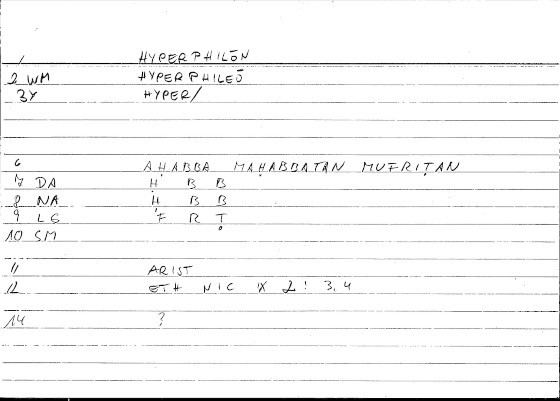 1 HYPERPHILŌN
2 WM HYPERPHILEŌ
3Y HYPER/
6 AḤABBA MAḤABBATAN MUFRIṬAN
7 DA Ḥ B B
8 NA Ḥ B B
9 LG F R Ṭ
10 SM
11 ARIST
12 ETH NIC IX 2: 3.4
14 ?